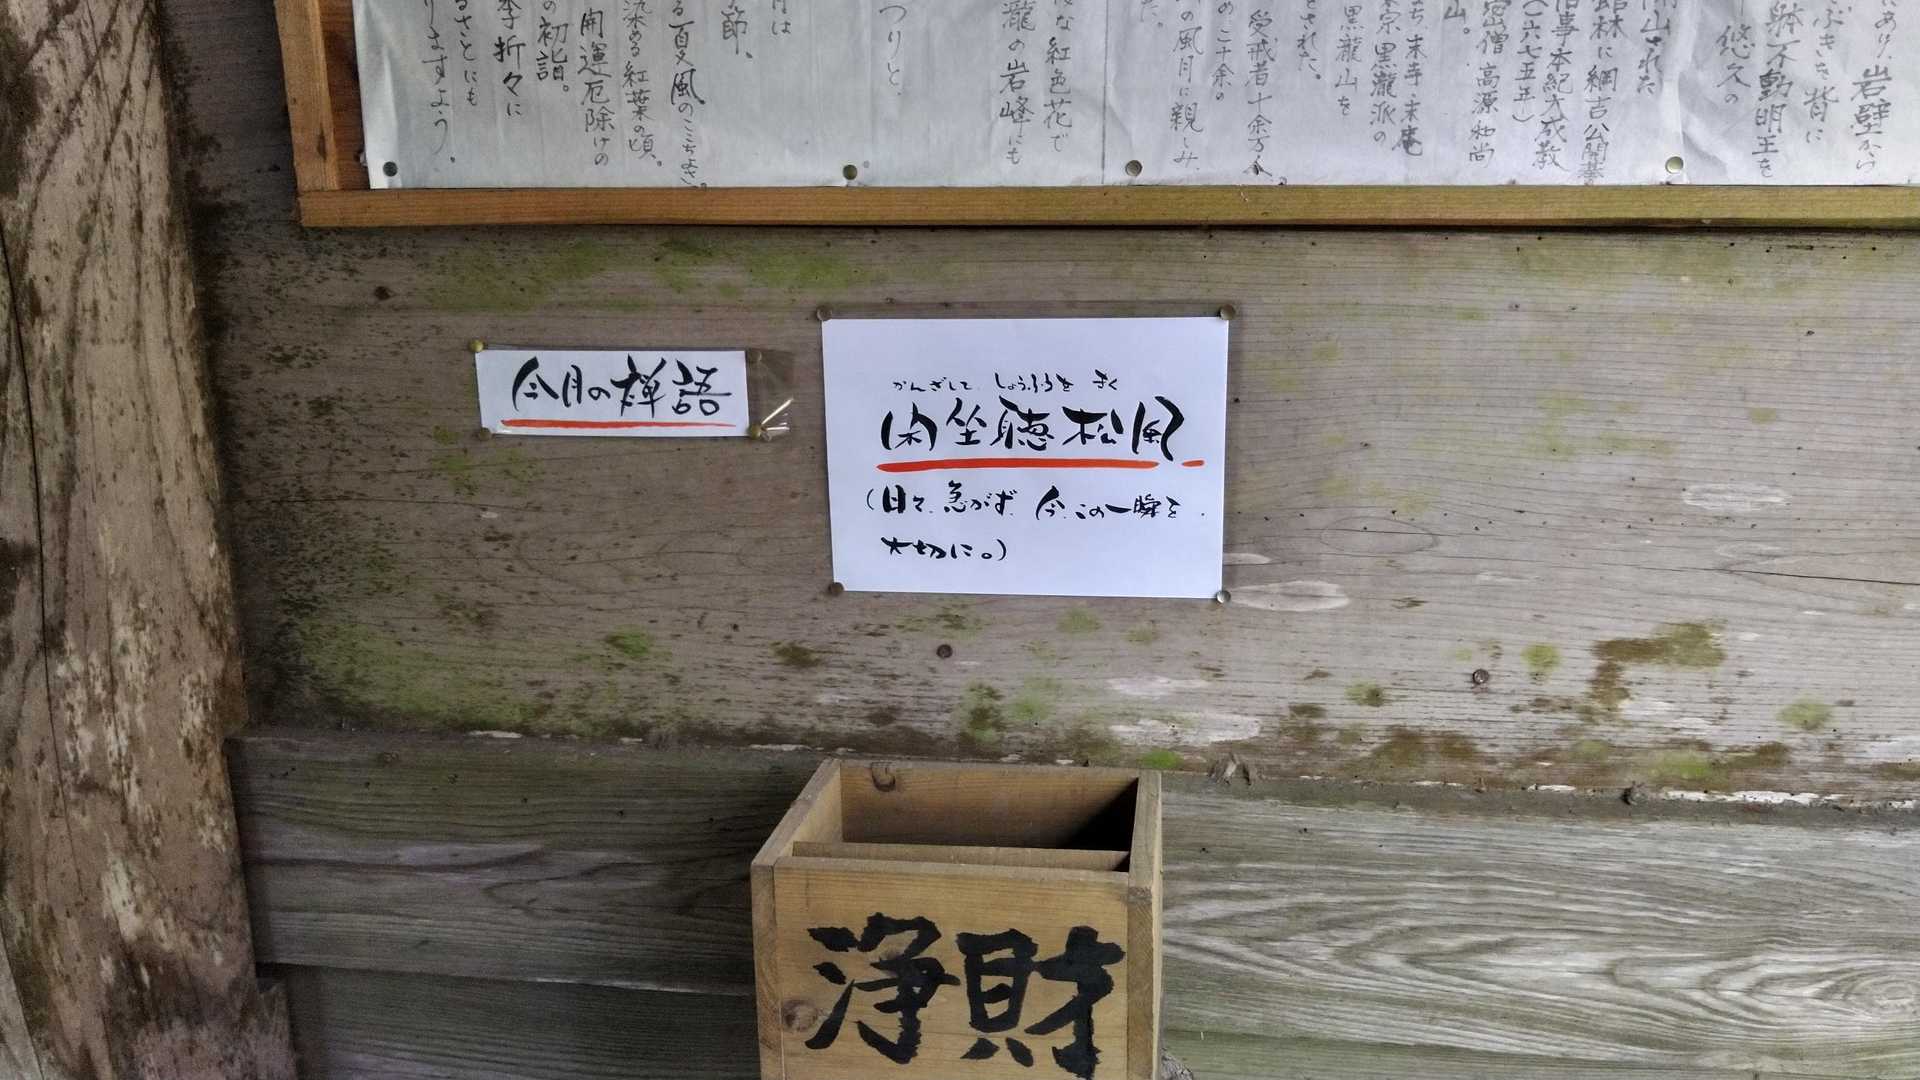 にあけ、岩壁から
ぶきを背に
躰不動明王を
悠久の
開山された
館林に綱吉公開基
旧事本紀大成教
(一六七五年)
密僧 高源和尚
山。
ち、末寺末庵
宗黒瀧派の
黒瀧山を
とされた。
受戒者十余万人。
め二十余の
の風月に親しみ、
た。
な紅色花で
瀧の岩峰にも
つりと、
月は
節、
る夏風のここちよさ。
染める紅葉の頃。
開運厄除けの
の初詣。
季折々に
るさとにも
りますよう。
今月の禅語
かんざして しょうふうを きく
閑坐聴松風
(日々、急がず、今、この一瞬を
大切に。)
浄財